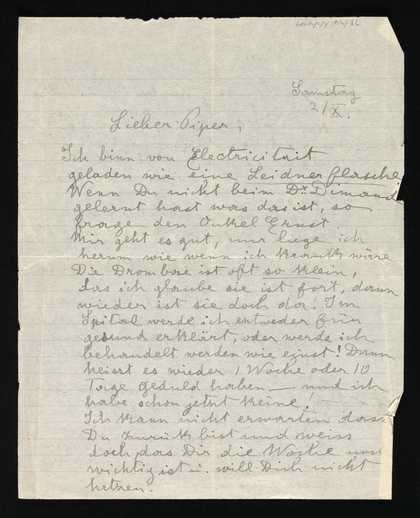 Samstag
2/X.
Lieber Piper,
Ich binn von Electricität
geladen wie eine Leidner flasche
Wenn Du nicht beim Dr. Dimand
gelernt hast was das ist, so
frage den Onkel Ernst.
Mir geht es gut, nur liege ich
herum wie wenn ich krank wäre
Die Drombose ist oft so klein,
das ich glaube sie ist fort, dann
wieder ist sie doch da! Im
Spital werde ich entweder für
gesund erklärt, oder werde ich
behandelt werden wie einst! Dann
heisst es wieder 1 Woche oder 10
Tage geduld haben — und ich
habe schon jetzt keine! —
Ich kann nicht erwarten dass
Du zurück bist und weiss
doch das Dir die Woche
wichtig ist u. will Dich nicht
hetzen.